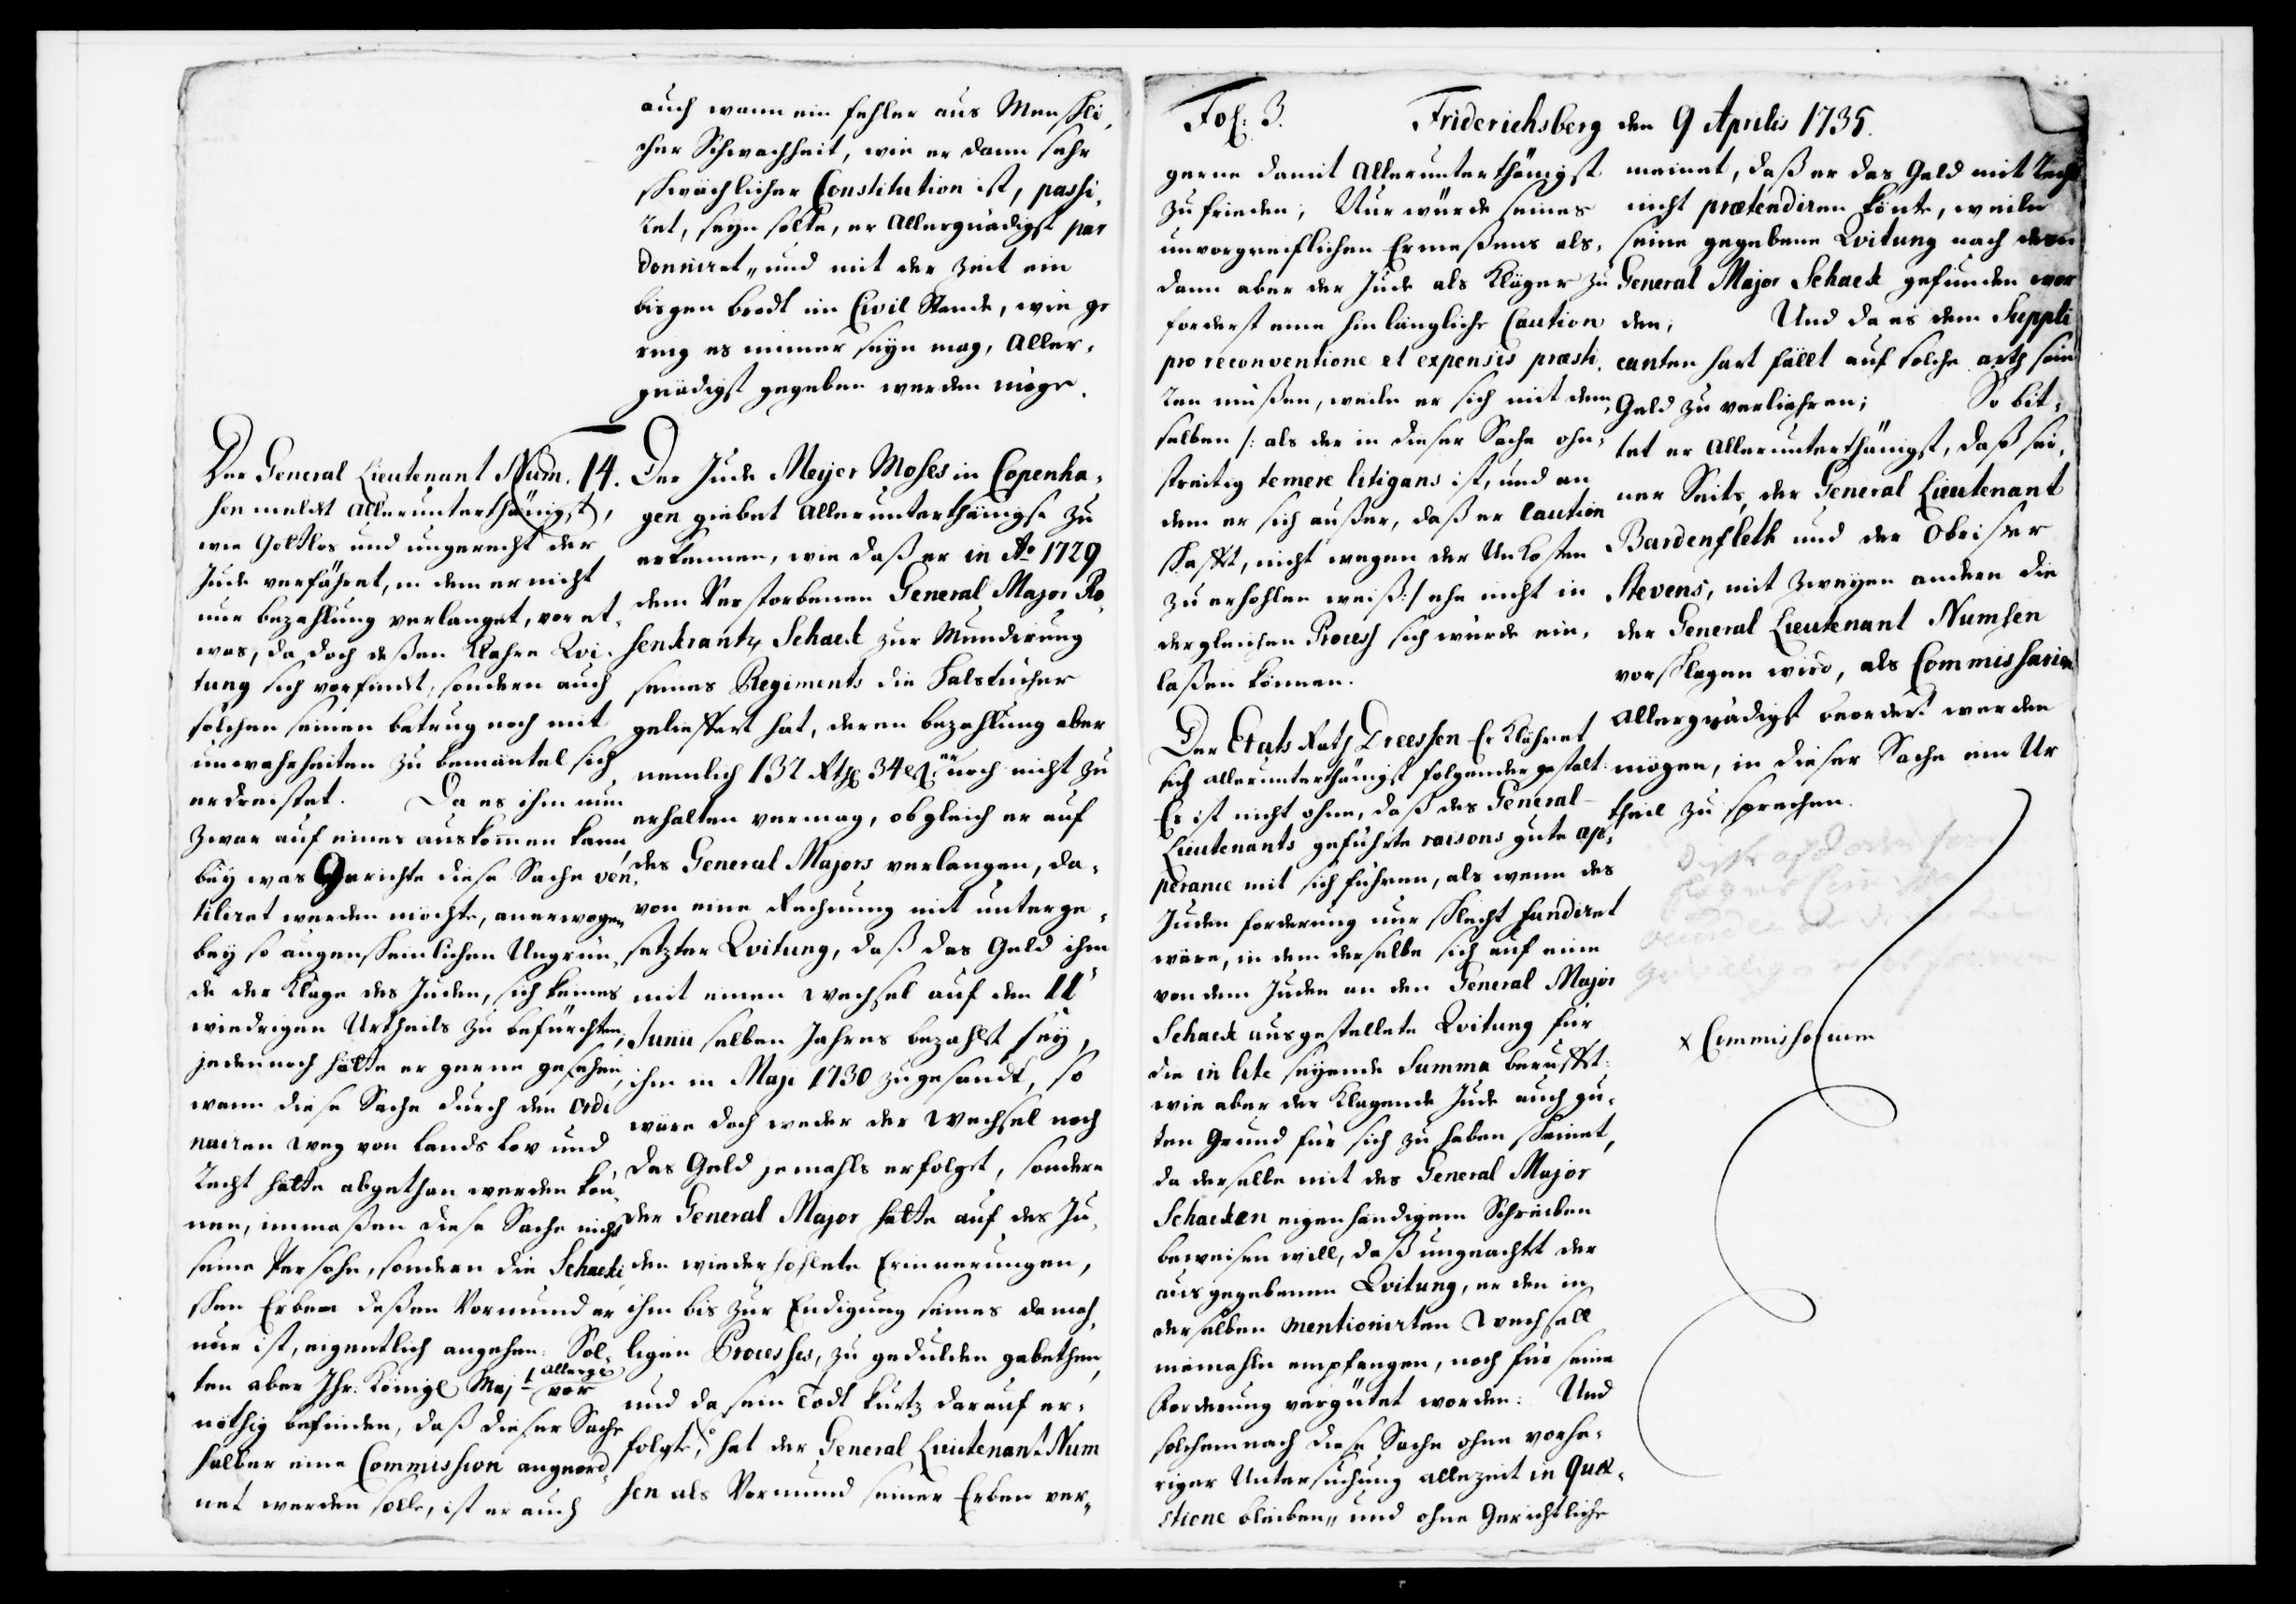 auch wann ein fehler aus Menschli„
cher Schwachheit, wie er dann sehr
schwächlicher Constitution ist, passi„
ret, seyn solte, er Allergnädigst par
donniret„ und mit der Zeit ein
bisgen brodt im Civil Stande, wie ge
ring es immer seyn mag, Aller„
gnädigst gegeben werden möge.
Der General Lieutenant Num„
sen meldet Allerunterthänigst,
wie Gottlos und ungerecht der
Jude verfähret, in dem er nicht
nur bezahlung verlanget, vor et„
was, da doch deßen klahre Qvi„
tung sich vorfindet, sondern auch
solchen seinen betrug noch mit
unwahrheiten zu bemäntel sich
erdreistet. Da es ihm nun
zwar auf eines auskom̄en kann,
beÿ was Gerichte diese Sache ven„
tiliret werden möchte, anerwogen
bey so augenscheinlichen Ungrun„
de der Klage des Juden, sich keines
wiedrigen Urtheils zu befürchten;
jedennoch hätte er gerne gesehen,
wann diese Sache durch den ordi
nairen Weg von Lands Lov und
Recht hätte abgethan werden kön„
nen, immaßen diese Sache nicht
seine Persohn, sondern die Schacki
schen Erben deßen Vormund er
nur ist, eigentlich angehen. Sol„
ten aber Ihr. Königl Majt allergn
vor
nöthig befinden, daß dieser Sache
halber eine Commission angeord„
net werden solle, ist er auch
14. Der Jude Meyer Moses in Copenha„
gen giebet Allerunterthänigst zu
erkennen, wie daß er in Ao 1729
dem Verstorbenen General Major Ro„
senkrantz Schack zur Mundirung
seines Regiments die Halstücher
geliefert hat, deren bezahlung aber
nemlich 132 Rthl 34 ß er noch nicht zu
erhalten vermag, obgleich er auf
des General Majors verlangen, da„
von eine Rechnung mit unterge„
setzter Qvitung, daß das Geld ihm
mit einen Wechsel auf den 11
Junii selben Jahres bezahlt seÿ,
ihm in Maji 1730 zugesandt, so
wäre doch weder der Wechsel noch
das Geld jemahls erfolget, sondern
der General Major hätte auf des Ju„
den wiederhohlete Erinnerungen,
ihm bis zur Endigung seines damah„
ligen Processes, zu gedulden gebethen,
und da sein Todt kurtz darauf er„
folgte, hat der General Lieutenant Num
sen als Vormund seiner Erben ver„
Fol: 3. Friderichsberg den 9 Aprilis 1735.
gerne damit Allerunterthänigst
zufrieden; Nur würde seines
unvorgreiflichen Ermeßens als„
dann aber der Jude als Kläger zu
forderst eine hinlängliche Caution
pro reconventione et expensis præsti„
ren müßen, weiln er sich mit dem„
selben /: als der in dieser Sache ohn„
streitig temere litigans ist, und an
dem er sich außer, daß er Caution
schafft, nicht wegen der Unkosten
zu erhohlen weiß:/ ehe nicht in
dergleichen Process sich würde ein„
laßen können.
Der Etats Rath Dreessen Erklähret
sich allerunterthänigst folgender gestalt:
Es ist nicht ohne, daß des General
Lieutenants geführte raisons gute ap„
perance mit sich führen, als wenn des
Juden forderung nur schlecht fundiret
wäre, in dem derselbe sich auf eine
von dem Juden an den General Major
Schack ausgestellete Qvitung für
die in lite seyende Summa berufft:
wie aber der Klagende Jude auch gu„
ten Grund für sich zu haben scheinet,
da derselbe mit des General Major
Schacken eigenhändigem Schreiben
beweisen will, daß ungeachtet der
ausgegebenen Qvitung, er den in
derselben mentionirten Wechsell
niemahln empfangen, noch für seine
Forderung vergütet worden: Und
solchemnach diese Sache ohne vorhe„
riger Untersuchung allezeit in Quæ„
stione bleiben„ und ohne Gerichtliche
meinet, daß er das Geld mit Recht
nicht prætendiren könte, weiln
seine gegebene Qvitung nach dem
General Major Schack gefunden wor
den; Und da es dem Suppli
canten hart fällt auf solche arth sein
Geld zu verliehren; So bit„
tet er Allerunterthänigst, daß sei„
ner Seits, der General Lieutenant
Bardenfleth und der Obrister
Stevens, mit zweyen andern die
der General Lieutenant Numsen
vorschlagen wird, als Commissarien
Allergnädigst beordert werden
mögen, in dieser Sache ein Ur
theil zu sprechen.
x Commissorium